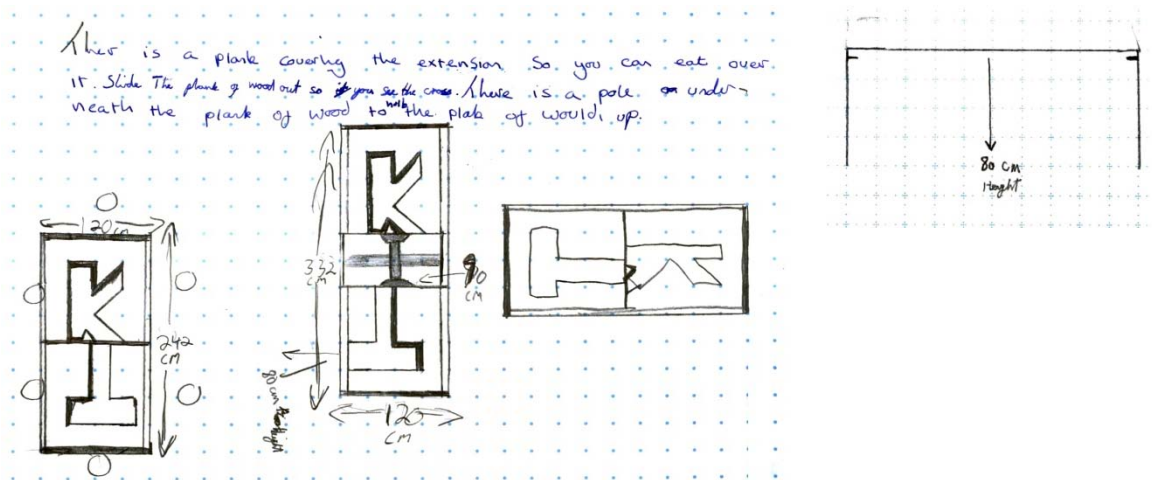 Ther is a plank covering the extension So you can eat over
it. Slide The plank of wood out so you see the cross. There is a pole under-
neath the plank of wood to hold the plak of would up.
120 cm
242
CM
332
CM
90
CM
80 cm Height
120
CM
80 CM
Height
K
K